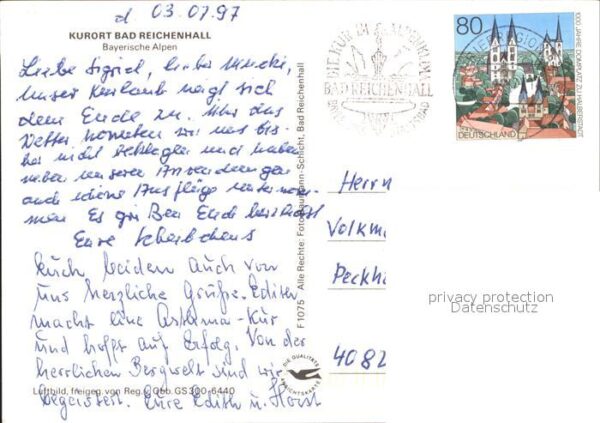 d 03.07.97
KURORT BAD REICHENHALL
Bayerische Alpen
Liebe Sigrid, lieber
unser Kurlaub neigt sich
dem Ende zu. Über das
Wetter konnten wir uns bis-
her nicht beklagen und haben
neben unseren Anwendungen
auch schöne Ausflüge unternom-
men. Es grüßen Euch herzlichst
Eure Scheibchens
Euch beiden auch von
uns herzliche Grüße. Edith
macht eine Asthma-Kur
und hofft auf Erfolg. Von der
herrlichen Bergwelt sind wir
begeistert. Eure Edith u. Horst
Luftbild, freigeg. von Reg. v. Obb. GS 300-6440
F 1075 Alle Rechte: Foto Baumann-Schicht, Bad Reichenhall
DIE QUALITÄTS
ANSICHTSKARTE
BAD REICHENHALL
80
DEUTSCHLAND
1000 JAHRE DOMPLATZ ZU HALBERSTADT
Herrn
Volkm
Peckh
4082
privacy protection
Datenschutz